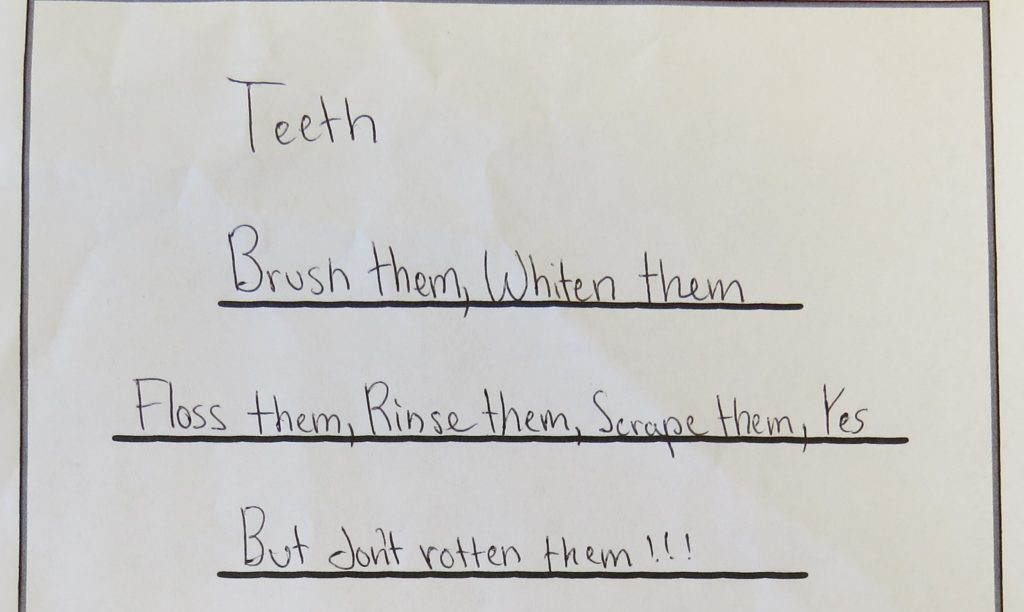 Teeth
Brush them, Whiten them
Floss them, Rinse them, Scrape them, Yes
But don't rotten them!!!